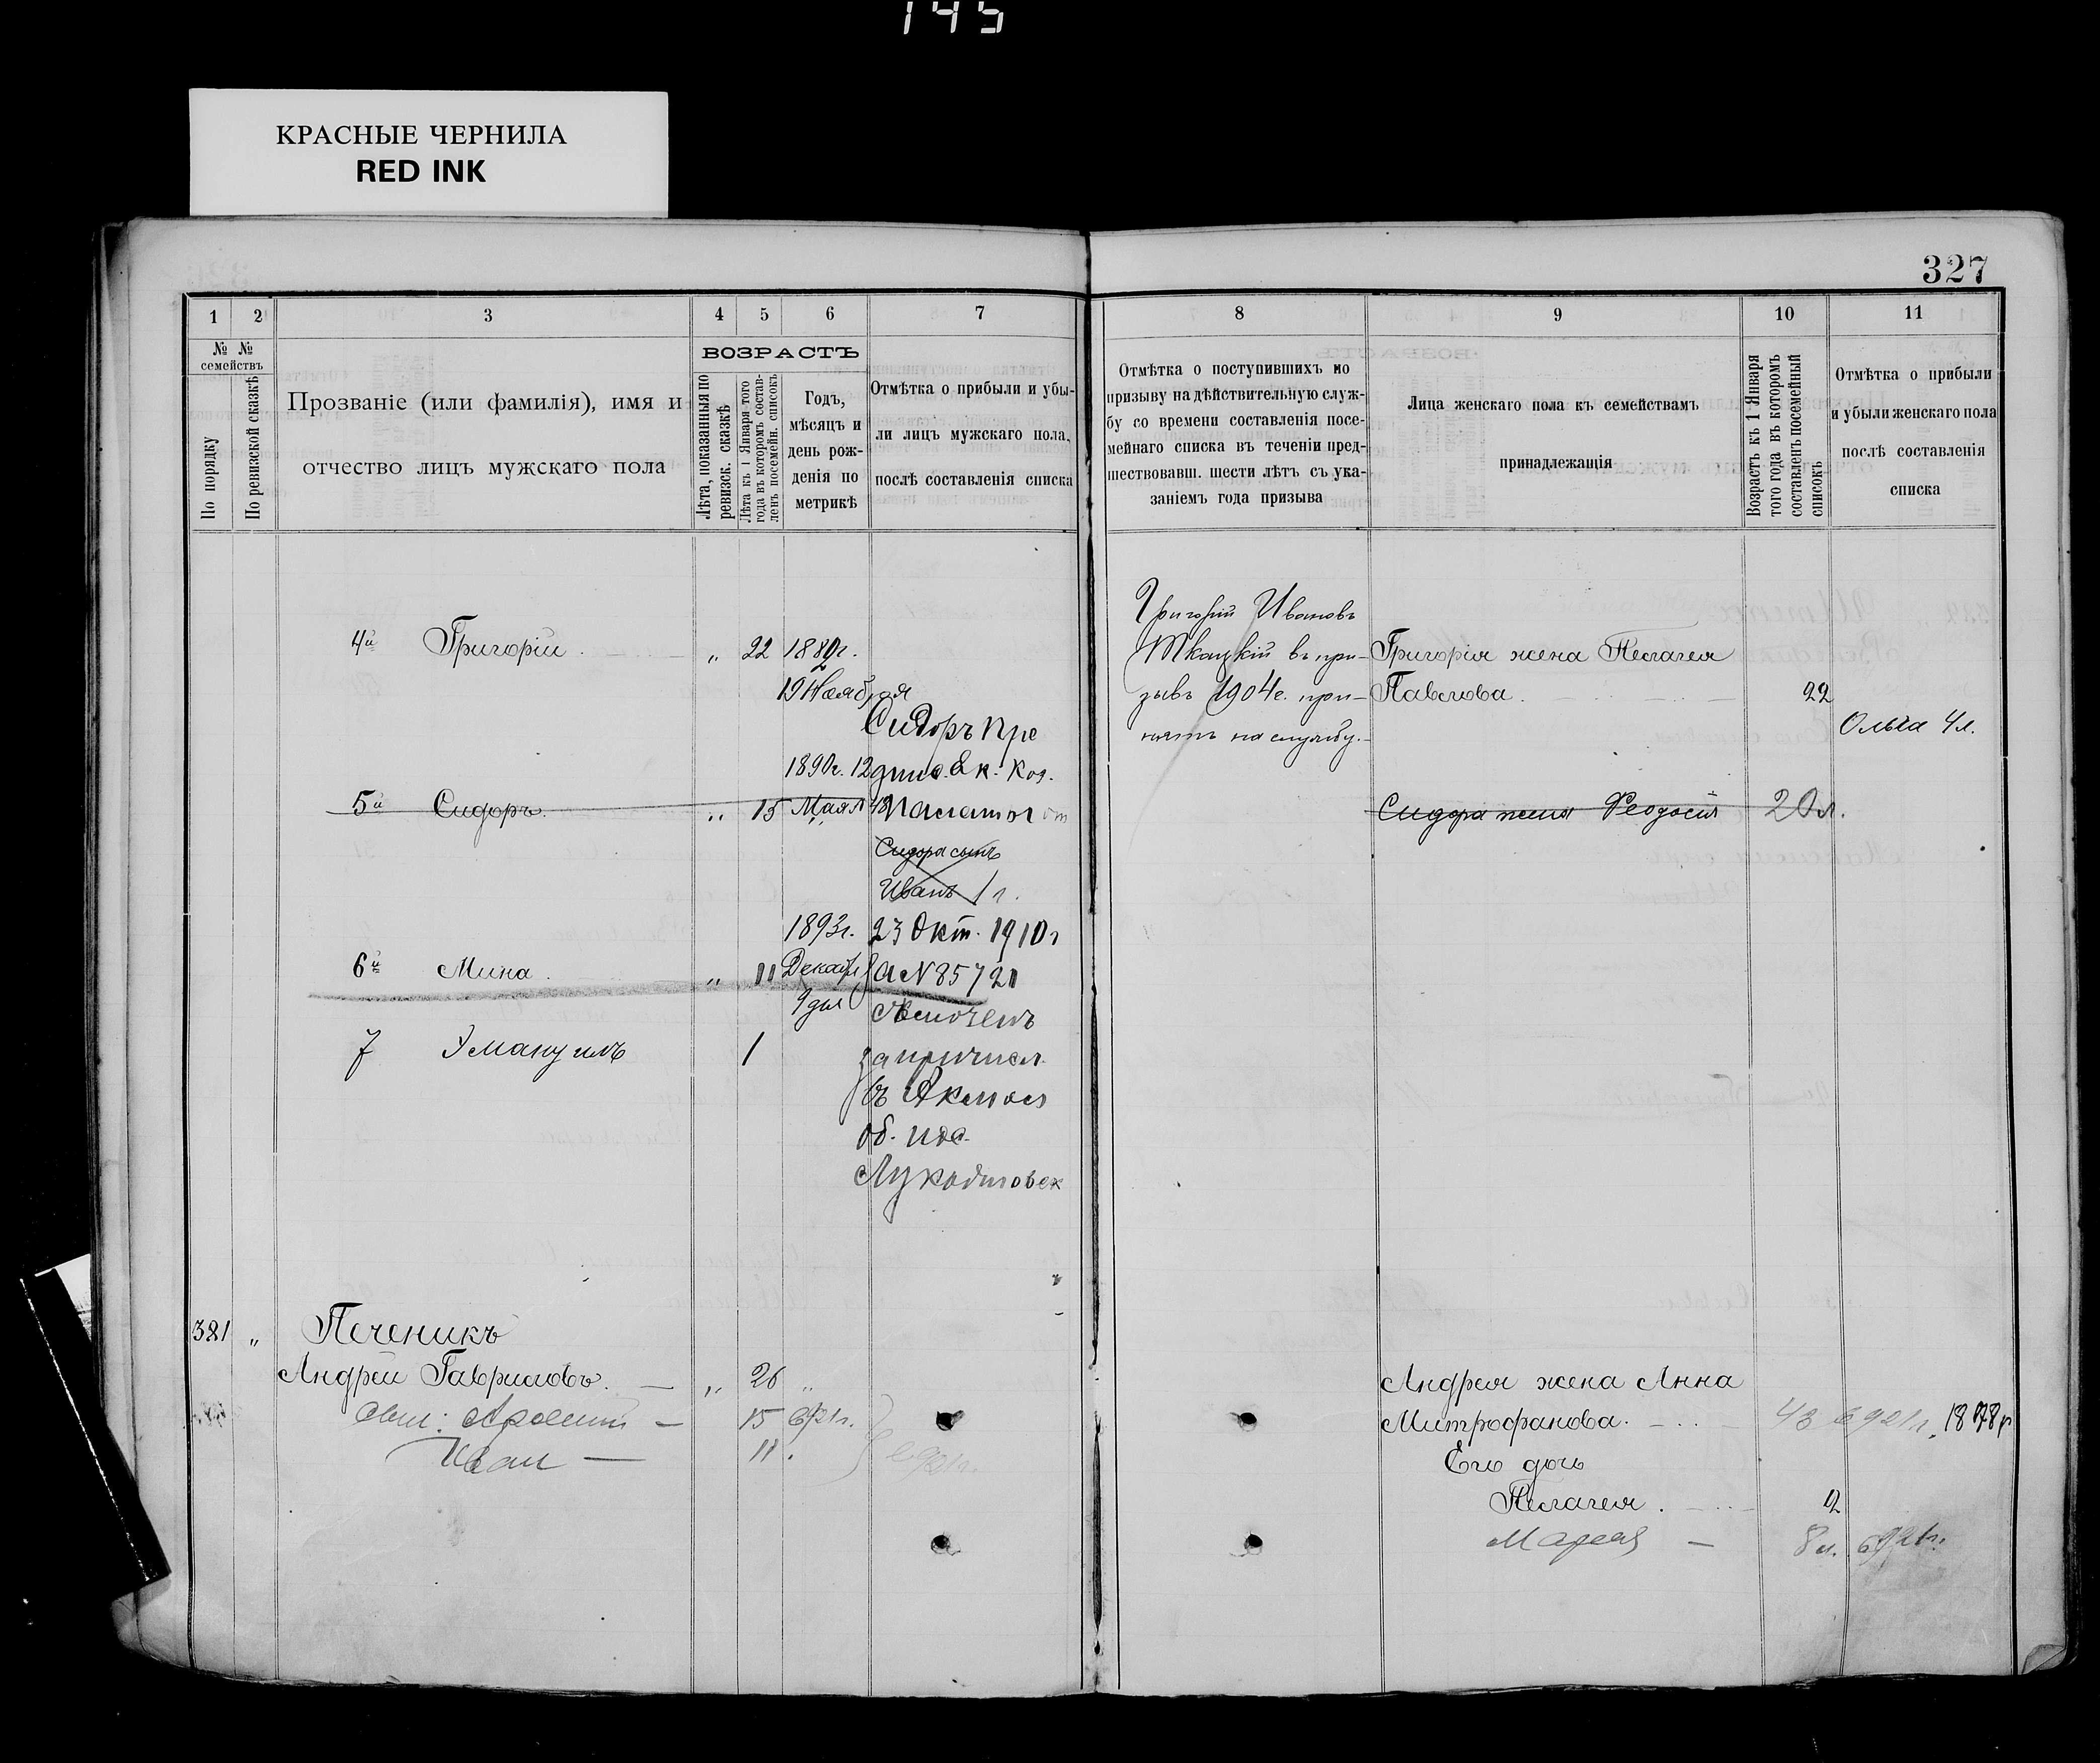 145
КРАСНЫЕ ЧЕРНИЛА
RED INK
327
1 2 3 4 5 6 7
8 9 10 11
№ № семействъ
По порядку
По ревизской сказкѣ
Прозваніе (или фамилія), имя и
отчество лицъ мужскаго пола
ВОЗРАСТЪ
Лѣта, показанныя по
ревизск. сказкѣ
Лѣта къ 1 Января того
года въ которомъ состав-
ленъ посемейн. списокъ
Годъ,
мѣсяцъ и
день рож-
денія по
метрикѣ
Отмѣтка о прибыли и убы-
ли лицъ мужскаго пола,
послѣ составленія списка
Отмѣтка о поступившихъ по
призыву на дѣйствительную служ-
бу со времени составленія посе-
мейнаго списка въ теченіи пред-
шествовавш. шести лѣтъ съ ука-
заніемъ года призыва
Лица женскаго пола къ семействамъ
принадлежащія
Возрастъ къ 1 Января
того года въ которомъ
составленъ посемейный
списокъ
Отмѣтка о прибыли
и убыли женскаго пола
послѣ составленія
списка
4й Григорій „ 22
19 Ноября
Сидоръ
1890г. 12
5й Сидоръ „ 15 Мая
Палаты
Сидора сынъ
Иванъ 1 г.
1893г. 23 Окт. 1910г
6й Мина „ 11 Декабр
9 дня
7 Эмануилъ 1
въ Акмол
об.
Григорій Ивановъ
Ткацкій въ при-
зывъ 1904г. при-
нятъ на службу.
Григорія жена Пелагея
Павлова 22
Ольга 4л.
Сидора жена Феодосія 20л.
381 „ Печеникъ
Андрей Гавриловъ. — „ 26 „
15
Иван — 11
Андрея жена Анна
Митрофанова. 43 в 921г. 1878г
Его дочь
Пелагея 2
Мария — 8л. в 921г.